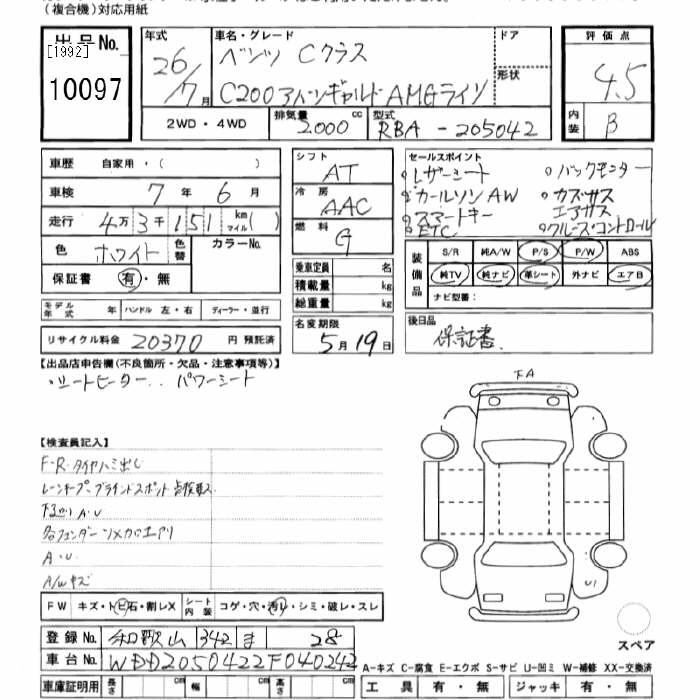 (複合機)対応用紙
出品No. [1992] 10097
年式 26/7月
車名・グレード ベンツ Cクラス
C200アバンギャルド AMGライン
ドア 形状
評価点 4.5
内装 B
2WD・4WD 排気量 2000 cc 型式 RBA-205042
車歴 自家用・( )
車検 7年 6月
走行 4万3千151 km マイル( )
色 ホワイト 色替 カラーNo.
保証書 有・無
モデル年式 年 ハンドル 左・右 ディーラー・並行
リサイクル料金 20370 円 預託済
シフト AT
冷房 AAC
燃料 G
乗車定員 名
積載量 kg
総重量 kg
名変期限 5月19日
セールスポイント
◦レザーシート ◦バックモニター
◦カールソンAW ◦カスサス
◦スマートキー エアサス
◦ETC ◦クルーズ・コントロール
装備品 S/R 純A/W P/S P/W ABS
純TV 純ナビ 革シート 外ナビ エアB
ナビ型番:
後日品 保証書
【出品店申告欄(不良箇所・欠品・注意事項等)】
・シートヒーター.. パワーシート
下A
【検査員記入】
F・R・タイヤハミ出し
レーンキープ、ブラインドスポット点検
下廻り A・U
A・U
A/Wキズ
U1
FW キズ・トビ石・割レX シート内装 コゲ・穴・汚レ・シミ・破レ・スレ
スペア
登録No. 和歌山 342 ま 28
車台No. WDD2050422F040242
A-キズ C-腐食 E-エクボ S-サビ U-凹ミ W-補修 XX-交換済
車庫証明用 長さ cm 幅 cm 高さ cm
工具 有・無 ジャッキ 有・無